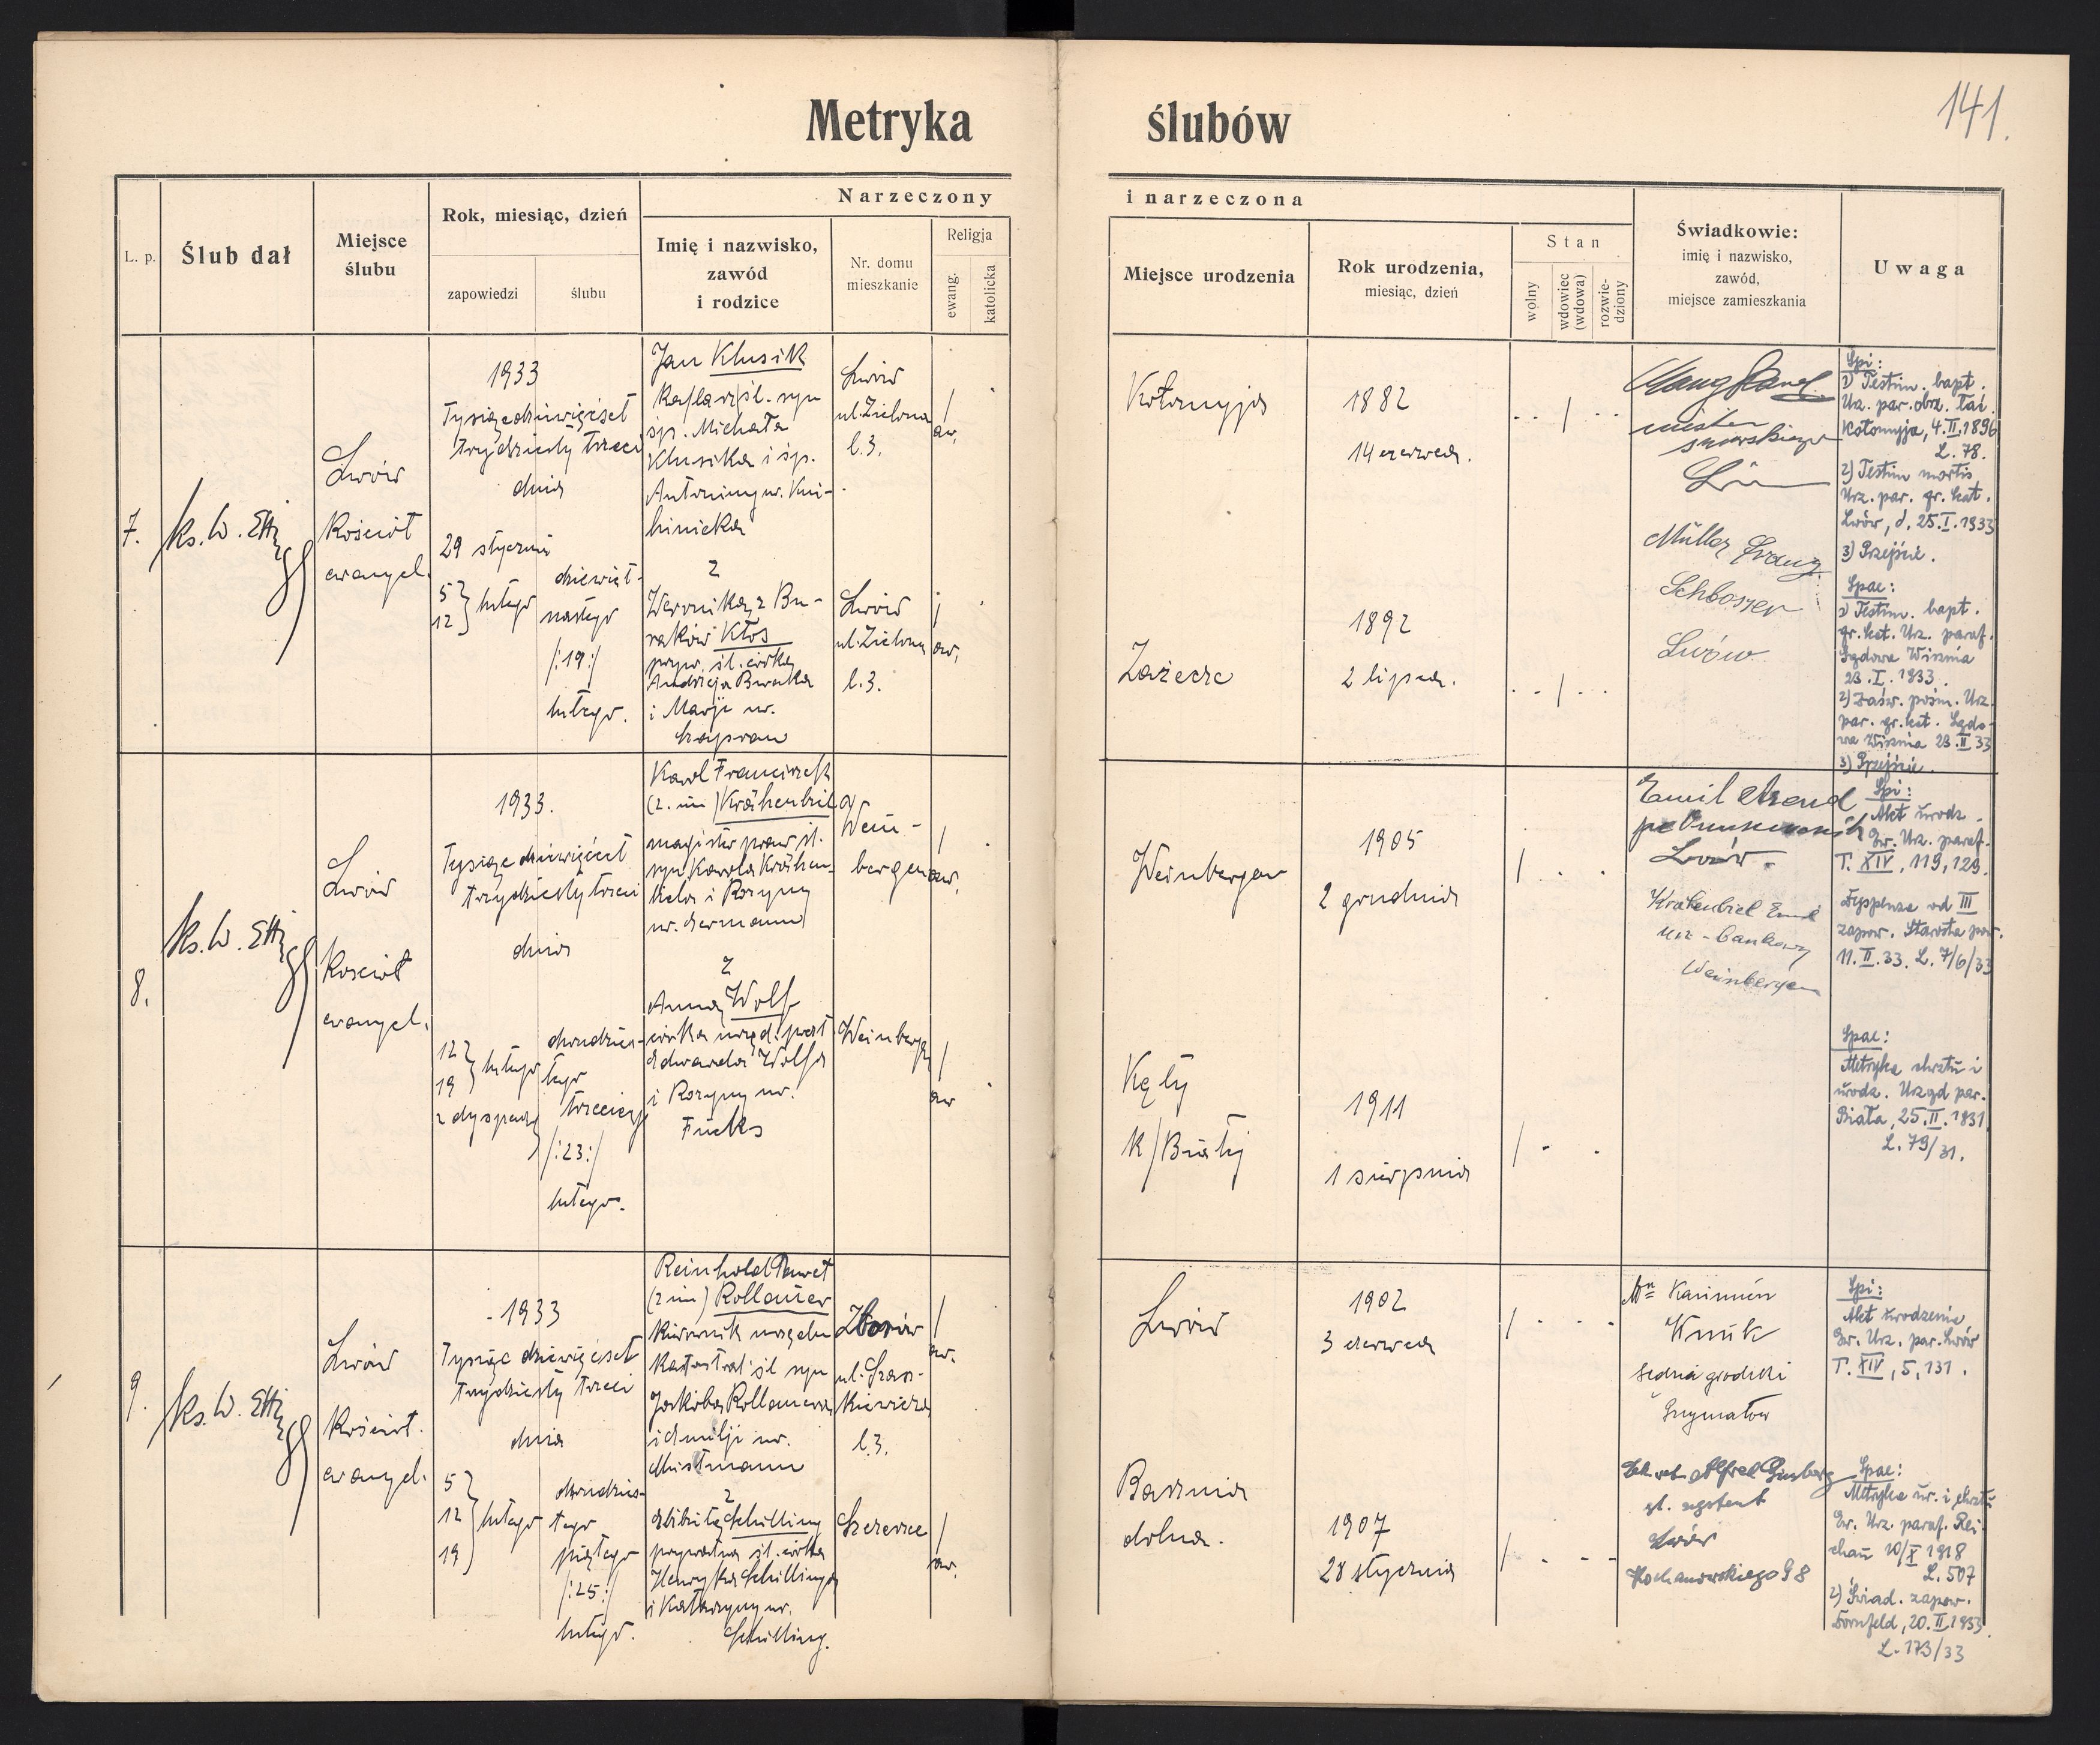 141.
Metryka ślubów
Narzeczony i narzeczona
L. p.
Ślub dał
Miejsce
ślubu
Rok, miesiąc, dzień
zapowiedzi
ślubu
Imię i nazwisko,
zawód
i rodzice
Nr. domu
mieszkanie
Religja
ewang.
katolicka
Miejsce urodzenia
Rok urodzenia,
miesiąc, dzień
Stan
wolny
wdowiec
(wdowa)
rozwie-
dziony
Świadkowie:
imię i nazwisko,
zawód,
miejsce zamieszkania
Uwaga
7.
ks. W.
Lwów
Kościół
ewangel.
1933
Tysiącdziewięćset
trzydziesty trzeci
dnia
29 stycznia
5
12 } lutego
dziewięt-
nastego
/:19:/
lutego.
Jan Klusik
kaflarz śl. syn
śp. Michała
Klusika i śp.
Antoniny ur. Kni-
hinicka
z
Weronika z Bu-
raków Kłos
pryw. śl. córka
Andrzeja Buraka
i Marji ur.
Lwów
ul. Zielona
l. 3.
Lwów
ul. Zielona
l. 3.
Kołomyja
1882
14 czerwca.
Zarzecze
1892
2 lipca.
Lwów
Müller Franz
Schlosser
Lwów
Spi:
1) Testim. bapt.
Urz. par. obrz. łac.
Kołomyja, 4.II.1896
L. 78.
2) Testim mortis
Urz. par. gr. kat.
Lwów, d. 25.I.1933
3) Przejście.
Spae:
1) Testim. bapt.
gr. kat. Urz. paraf.
Sądowa Wisznia
23.I.1933.
2) Zaśw. pośm. Urz.
par. gr. kat. Sądo-
wa Wisznia 23.II.33
3) Przejście.
8.
ks. W.
Lwów
Kościół
ewangel.
1933.
Tysiąc dziewięćset
trzydziesty trzeci
dnia
12
19 } lutego
z dyspensą
dwudzies-
tego
trzeciego
/:23:/
lutego.
Karol Franciszek
(2. im) Krähenbiel
magister praw śl.
syn Karola Krähen-
biela i Rozyny
ur. Hermann
z
Anna Wolf
córka urzęd. poczt
Edwarda Wolfa
i Rozyny ur.
Fucks
Wein-
bergen
aw.
Weinbergen
aw
Weinbergen
1905
2 grudnia
Kęty
k/Białej
1911
1 sierpnia
Emil
Lwów.
Krähenbiel Emil
urz - bankowy
Weinbergen
Spi:
Akt urodz.
Ew. Urz. paraf.
T. XIV, 119, 129.
Dyspensa od III
zapow. Starosta pow.
11.II.33. L. 7/6/33
Spae:
Metryka chrztu i
urodz. Urząd par.
Biała, 25.II.1931
L. 79/31.
9.
ks. W.
Lwów
Kościół.
ewangel.
1933
Tysiąc dziewięćset
trzydziesty trzeci
dnia
5
12 } lutego
19
dwudzies-
tego
piątego
/:25:/
lutego.
Reinhold Paweł
(2 im) Rollauer
kierownik urzędu
katastral śl syn
Jakóba Rollauera
i Emilji ur.
Mustmann
z
Elżbieta Schilling
prywatna śl. córka
Henryka Schillinga
i Katarzyny ur.
Schilling.
Zborów
l. 3.
Szczerzec
aw.
Lwów
1902
3 czerwca
Bartnia
dolna.
1907
28 stycznia
Mr Kazimierz
Kmik
Sędzia grodzki
Grzymałów
Alfred Ginsberg
Lwów
Kochanowskiego 98
Spi:
Akt urodzenia
Ew. Urz. par. Lwów
T. XIV, 5, 131.
Spae:
Metryka ur. i chrztu
Ew. Urz. paraf. Rei-
chau 10/X 1918
L. 507
2) Świad. zapow.
Dornfeld, 20.II.1933.
L. 173/33